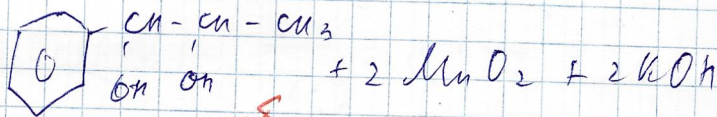 CH - CH - CH3
OH OH + 2 MnO2 + 2 KOH